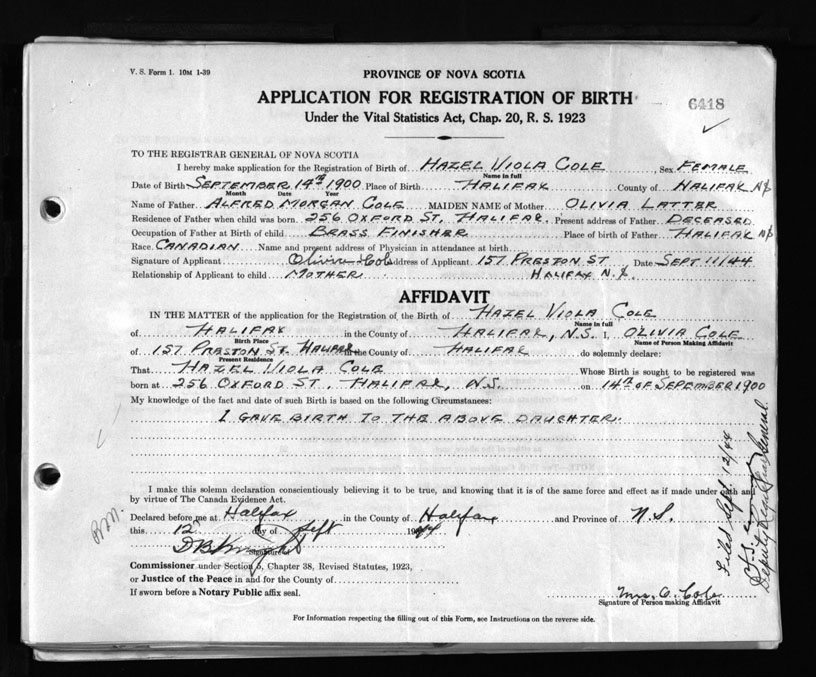 V. S. Form 1. 10M 1-39
PROVINCE OF NOVA SCOTIA
APPLICATION FOR REGISTRATION OF BIRTH
6418
Under the Vital Statistics Act, Chap. 20, R. S. 1923
TO THE REGISTRAR GENERAL OF NOVA SCOTIA
I hereby make application for the Registration of Birth of HAZEL VIOLA COLE, Sex FEMALE
Name in full
Date of Birth SEPTEMBER 14TH 1900 Place of Birth HALIFAX County of HALIFAX N.S
Month Date Year
Name of Father ALFRED MORGAN COLE MAIDEN NAME of Mother OLIVIA LATTER
Residence of Father when child was born. 256 OXFORD ST, HALIFAX. Present address of Father DECEASED
Occupation of Father at Birth of child BRASS FINISHER Place of birth of Father HALIFAX N.S
Race CANADIAN Name and present address of Physician in attendance at birth
Signature of Applicant Olivia Cole Address of Applicant 157 PRESTON ST Date SEPT 11/44
Relationship of Applicant to child MOTHER HALIFAX N.S.
AFFIDAVIT
IN THE MATTER of the application for the Registration of the Birth of HAZEL VIOLA COLE
Name in full
of HALIFAX in the County of HALIFAX, N.S. I, OLIVIA COLE
Birth Place Name of Person Making Affidavit
of 157 PRESTON ST. HALIFAX in the County of HALIFAX do solemnly declare:
Present Residence
That HAZEL VIOLA COLE Whose Birth is sought to be registered was
born at 256 OXFORD ST, HALIFAX, N.S. on 14TH OF SEPEMBER 1900
My knowledge of the fact and date of such Birth is based on the following Circumstances:
I GAVE BIRTH TO THE ABOVE DAUGHTER.
I make this solemn declaration conscientiously believing it to be true, and knowing that it is of the same force and effect as if made under oath and
by virtue of The Canada Evidence Act.
Declared before me at Halifax in the County of Halifax and Province of N.S.
this 12 day of Sept 1944
Signature of
Commissioner under Section 5, Chapter 38, Revised Statutes, 1923,
or Justice of the Peace in and for the County of
If sworn before a Notary Public affix seal.
Mrs. O. Cole
Signature of Person making Affidavit
For Information respecting the filling out of this Form, see Instructions on the reverse side.
Filed Sept. 12/44
Deputy Registrar General.